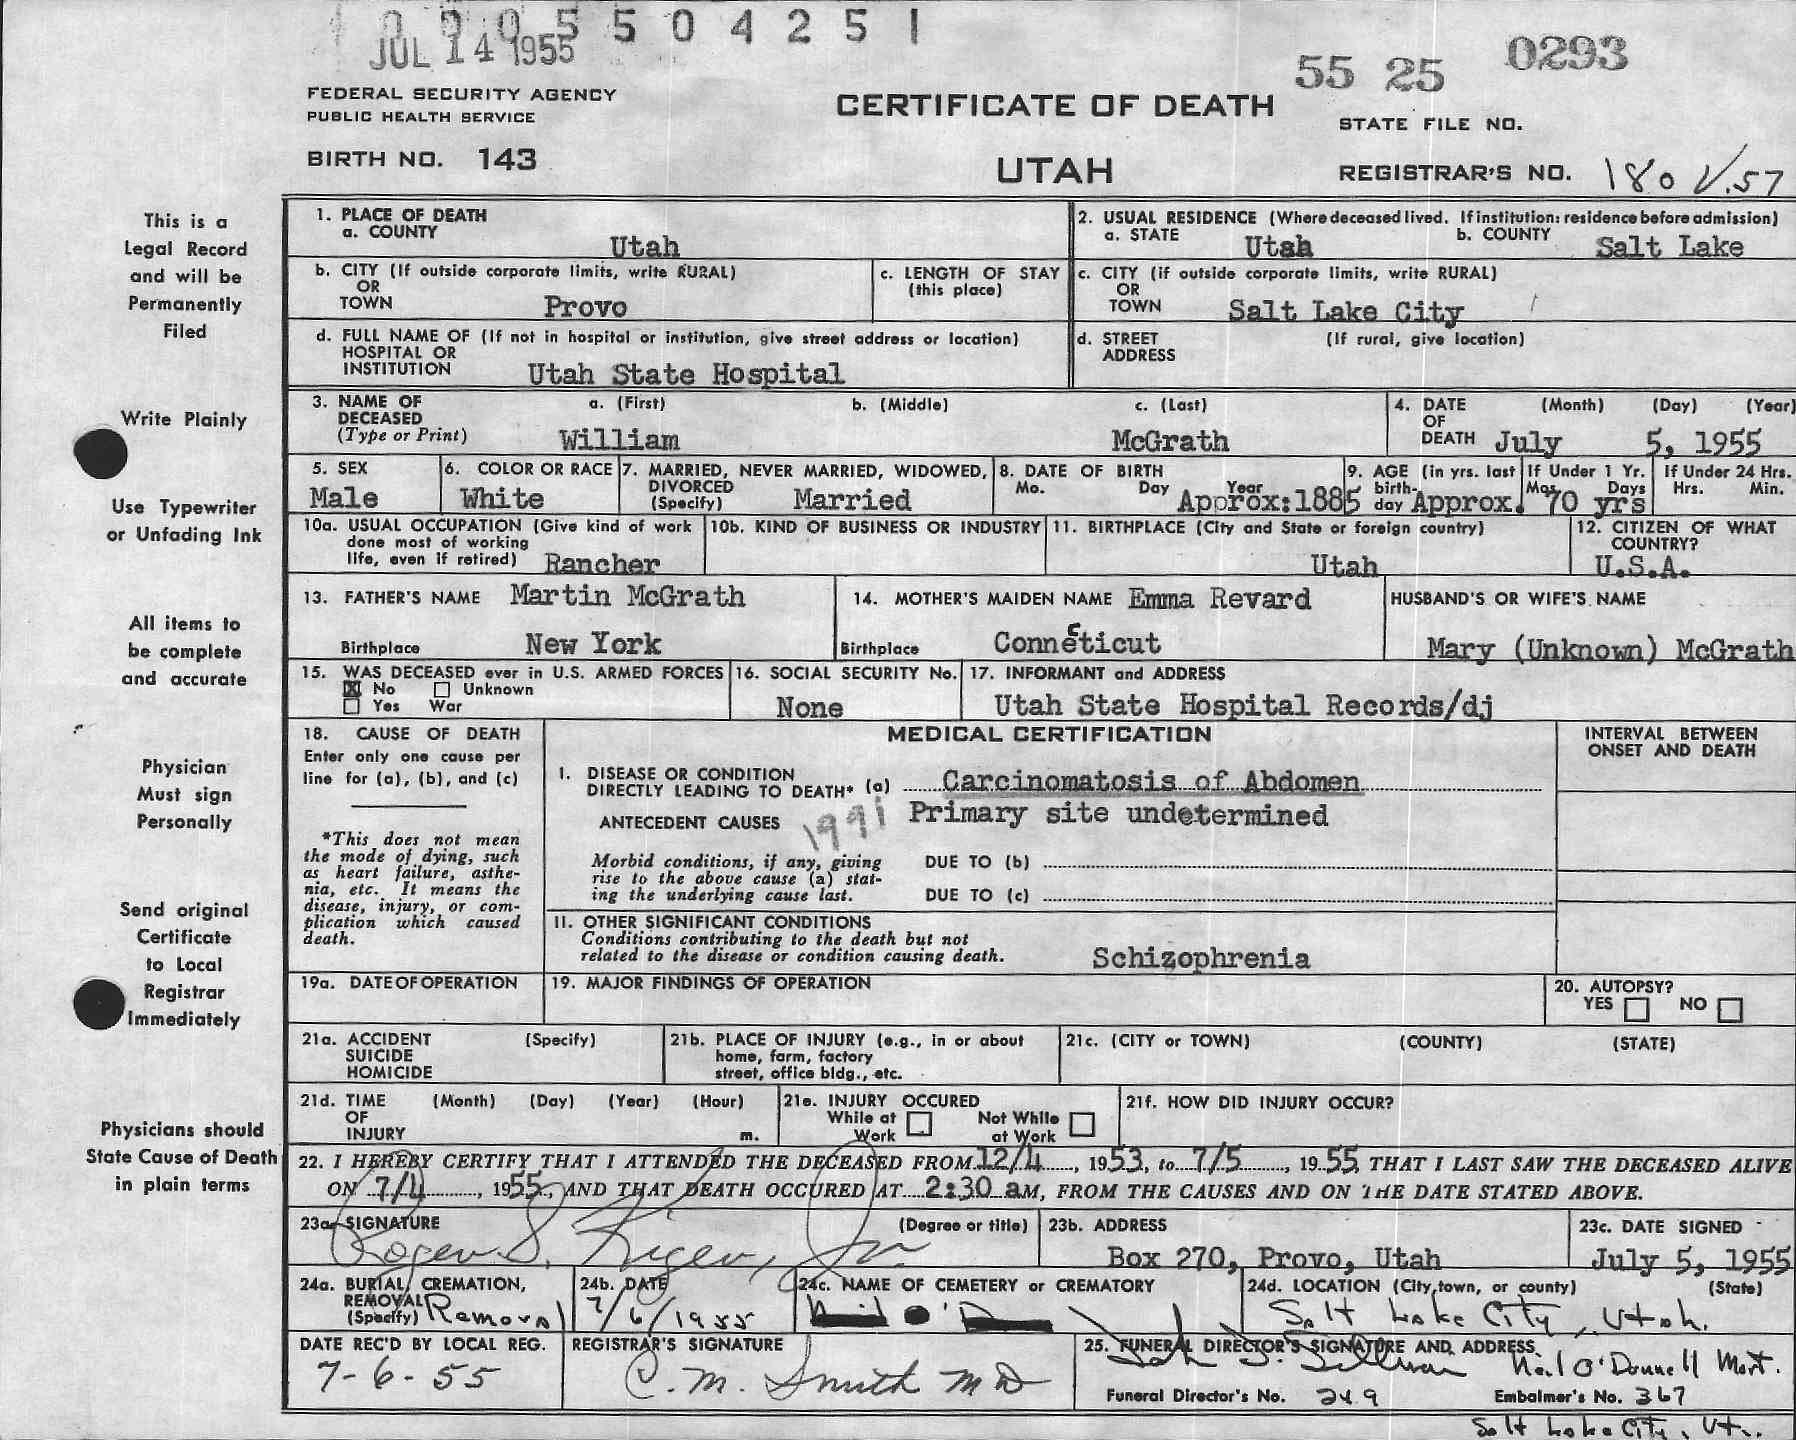 000 5504251
JUL 14 1955
55 25 0293
FEDERAL SECURITY AGENCY
PUBLIC HEALTH SERVICE
CERTIFICATE OF DEATH
STATE FILE NO.
BIRTH NO. 143
UTAH
REGISTRAR'S NO. 180 V.57
This is a
Legal Record
and will be
Permanently
Filed
Write Plainly
Use Typewriter
or Unfading Ink
All items to
be complete
and accurate
Physician
Must sign
Personally
Send original
Certificate
to Local
Registrar
Immediately
Physicians should
State Cause of Death
in plain terms
1. PLACE OF DEATH
a. COUNTY
Utah
2. USUAL RESIDENCE (Where deceased lived. If institution: residence before admission)
a. STATE Utah b. COUNTY Salt Lake
b. CITY (If outside corporate limits, write RURAL)
OR
TOWN Provo
c. LENGTH OF STAY
(this place)
c. CITY (if outside corporate limits, write RURAL)
OR
TOWN Salt Lake City
d. FULL NAME OF (If not in hospital or institution, give street address or location)
HOSPITAL OR
INSTITUTION Utah State Hospital
d. STREET (If rural, give location)
ADDRESS
3. NAME OF a. (First) b. (Middle) c. (Last)
DECEASED
(Type or Print) William McGrath
4. DATE (Month) (Day) (Year)
OF
DEATH July 5, 1955
5. SEX
Male
6. COLOR OR RACE
White
7. MARRIED, NEVER MARRIED, WIDOWED,
DIVORCED
(Specify) Married
8. DATE OF BIRTH
Mo. Day Year
Approx:1885
9. AGE (in yrs. last
birth-
day Approx. 70 yrs
If Under 1 Yr.
Mos. Days
If Under 24 Hrs.
Hrs. Min.
10a. USUAL OCCUPATION (Give kind of work
done most of working
life, even if retired) Rancher
10b. KIND OF BUSINESS OR INDUSTRY
11. BIRTHPLACE (City and State or foreign country)
Utah
12. CITIZEN OF WHAT
COUNTRY?
U.S.A.
13. FATHER'S NAME Martin McGrath
Birthplace New York
14. MOTHER'S MAIDEN NAME Emma Revard
Birthplace Connecticut
HUSBAND'S OR WIFE'S NAME
Mary (Unknown) McGrath
15. WAS DECEASED ever in U.S. ARMED FORCES
X No Unknown
Yes War
16. SOCIAL SECURITY No.
None
17. INFORMANT and ADDRESS
Utah State Hospital Records/dj
18. CAUSE OF DEATH
Enter only one cause per
line for (a), (b), and (c)
*This does not mean
the mode of dying, such
as heart failure, asthe-
nia, etc. It means the
disease, injury, or com-
plication which caused
death.
MEDICAL CERTIFICATION
INTERVAL BETWEEN
ONSET AND DEATH
I. DISEASE OR CONDITION
DIRECTLY LEADING TO DEATH* (a) Carcinomatosis of Abdomen
ANTECEDENT CAUSES 1991 Primary site undetermined
Morbid conditions, if any, giving
rise to the above cause (a) stat-
ing the underlying cause last.
DUE TO (b)
DUE TO (c)
II. OTHER SIGNIFICANT CONDITIONS
Conditions contributing to the death but not
related to the disease or condition causing death.
Schizophrenia
19a. DATE OF OPERATION
19. MAJOR FINDINGS OF OPERATION
20. AUTOPSY?
YES NO
21a. ACCIDENT (Specify)
SUICIDE
HOMICIDE
21b. PLACE OF INJURY (e.g., in or about
home, farm, factory
street, office bldg., etc.
21c. (CITY or TOWN) (COUNTY) (STATE)
21d. TIME (Month) (Day) (Year) (Hour)
OF
INJURY m.
21e. INJURY OCCURED
While at Not While
Work at Work
21f. HOW DID INJURY OCCUR?
22. I HEREBY CERTIFY THAT I ATTENDED THE DECEASED FROM 12/4, 1953, to 7/5, 1955 THAT I LAST SAW THE DECEASED ALIVE
ON 7/4, 1955, AND THAT DEATH OCCURED AT 2:30 aM, FROM THE CAUSES AND ON THE DATE STATED ABOVE.
23a. SIGNATURE (Degree or title)
Roger S. Kiger, Jr.
23b. ADDRESS
Box 270, Provo, Utah
23c. DATE SIGNED
July 5, 1955
24a. BURIAL, CREMATION,
REMOVAL
(Specify) Removal
24b. DATE
7/6/1955
24c. NAME OF CEMETERY or CREMATORY
24d. LOCATION (City, town, or county) (State)
Salt Lake City, Utah.
DATE REC'D BY LOCAL REG.
7-6-55
REGISTRAR'S SIGNATURE
C. M. Smith MD
25. FUNERAL DIRECTOR'S SIGNATURE AND ADDRESS
Neil O'Donnell Mort.
Funeral Director's No. 249 Embalmer's No. 367
Salt Lake City, Ut.